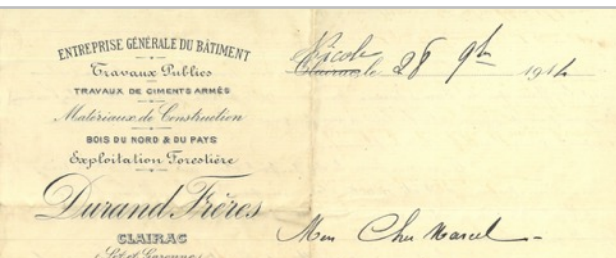 ENTREPRISE GÉNÉRALE DU BÂTIMENT
Travaux Publics
TRAVAUX DE CIMENTS ARMÉS
Matériaux de Construction
BOIS DU NORD & DU PAYS
Exploitation Forestière
Durand Frères
CLAIRAC
(Lot et Garonne)
Nicole
Clairac, le 28 9bre 1914
Mon Cher Marcel -